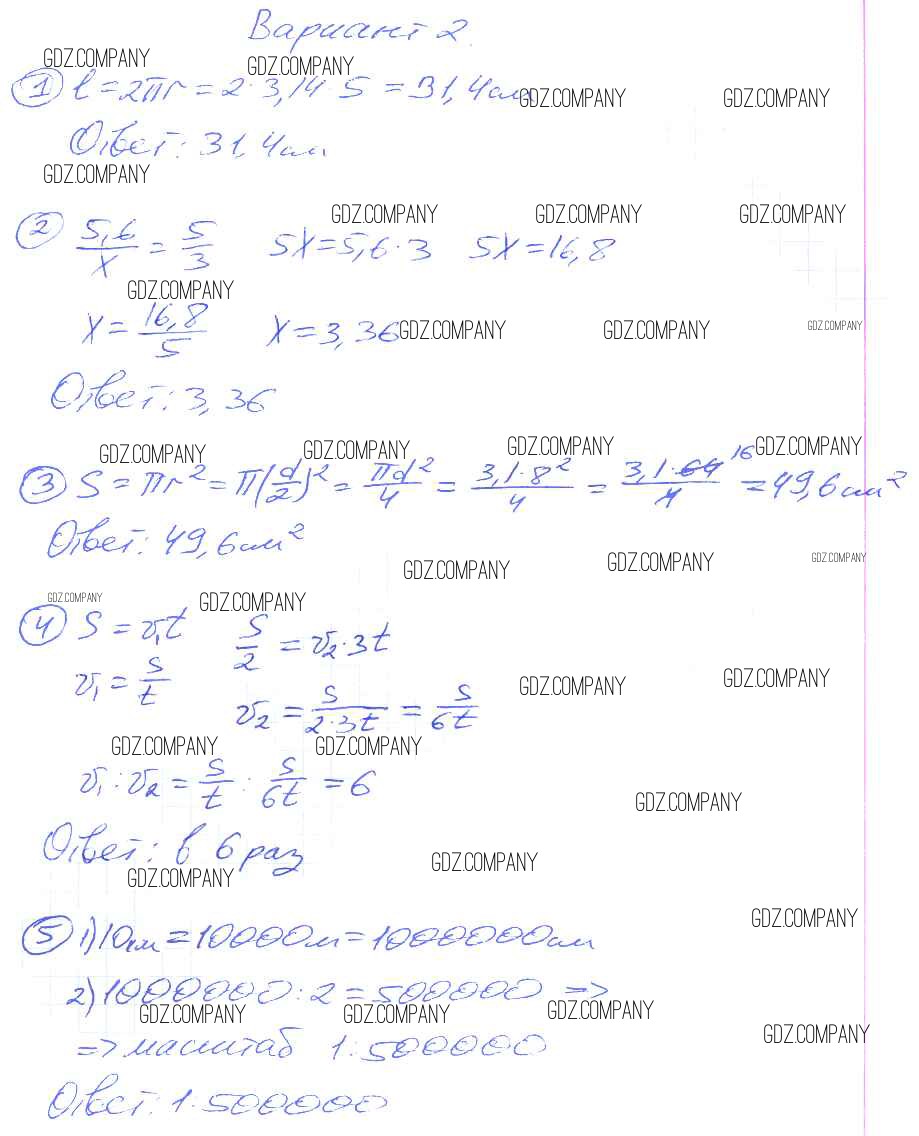 Вариант 2.
GDZ.COMPANY GDZ.COMPANY
① l = 2πr = 2·3,14·5 = 31,4см GDZ.COMPANY GDZ.COMPANY
Ответ: 31,4см
GDZ.COMPANY
GDZ.COMPANY GDZ.COMPANY GDZ.COMPANY
② 5,6/x = 5/3 5x = 5,6·3 5x = 16,8
GDZ.COMPANY
x = 16,8/5 x = 3,36 GDZ.COMPANY GDZ.COMPANY GDZ.COMPANY
Ответ: 3,36
GDZ.COMPANY GDZ.COMPANY GDZ.COMPANY GDZ.COMPANY
③ S = πr² = π(d/2)² = πd²/4 = 3,1·8²/4 = 3,1·64/4 16 = 49,6см²
Ответ: 49,6см²
GDZ.COMPANY GDZ.COMPANY GDZ.COMPANY
GDZ.COMPANY GDZ.COMPANY
④ S = v₁t S/2 = v₂·3t
v₁ = S/t GDZ.COMPANY GDZ.COMPANY
v₂ = S/2·3t = S/6t
GDZ.COMPANY GDZ.COMPANY
v₁ : v₂ = S/t : S/6t = 6
GDZ.COMPANY
Ответ: в 6 раз
GDZ.COMPANY GDZ.COMPANY
GDZ.COMPANY
⑤ 1) 10км = 10000м = 1000000см
2) 1000000 : 2 = 500000 =>
GDZ.COMPANY GDZ.COMPANY GDZ.COMPANY
GDZ.COMPANY
=> масштаб 1:500000
Ответ: 1:500000